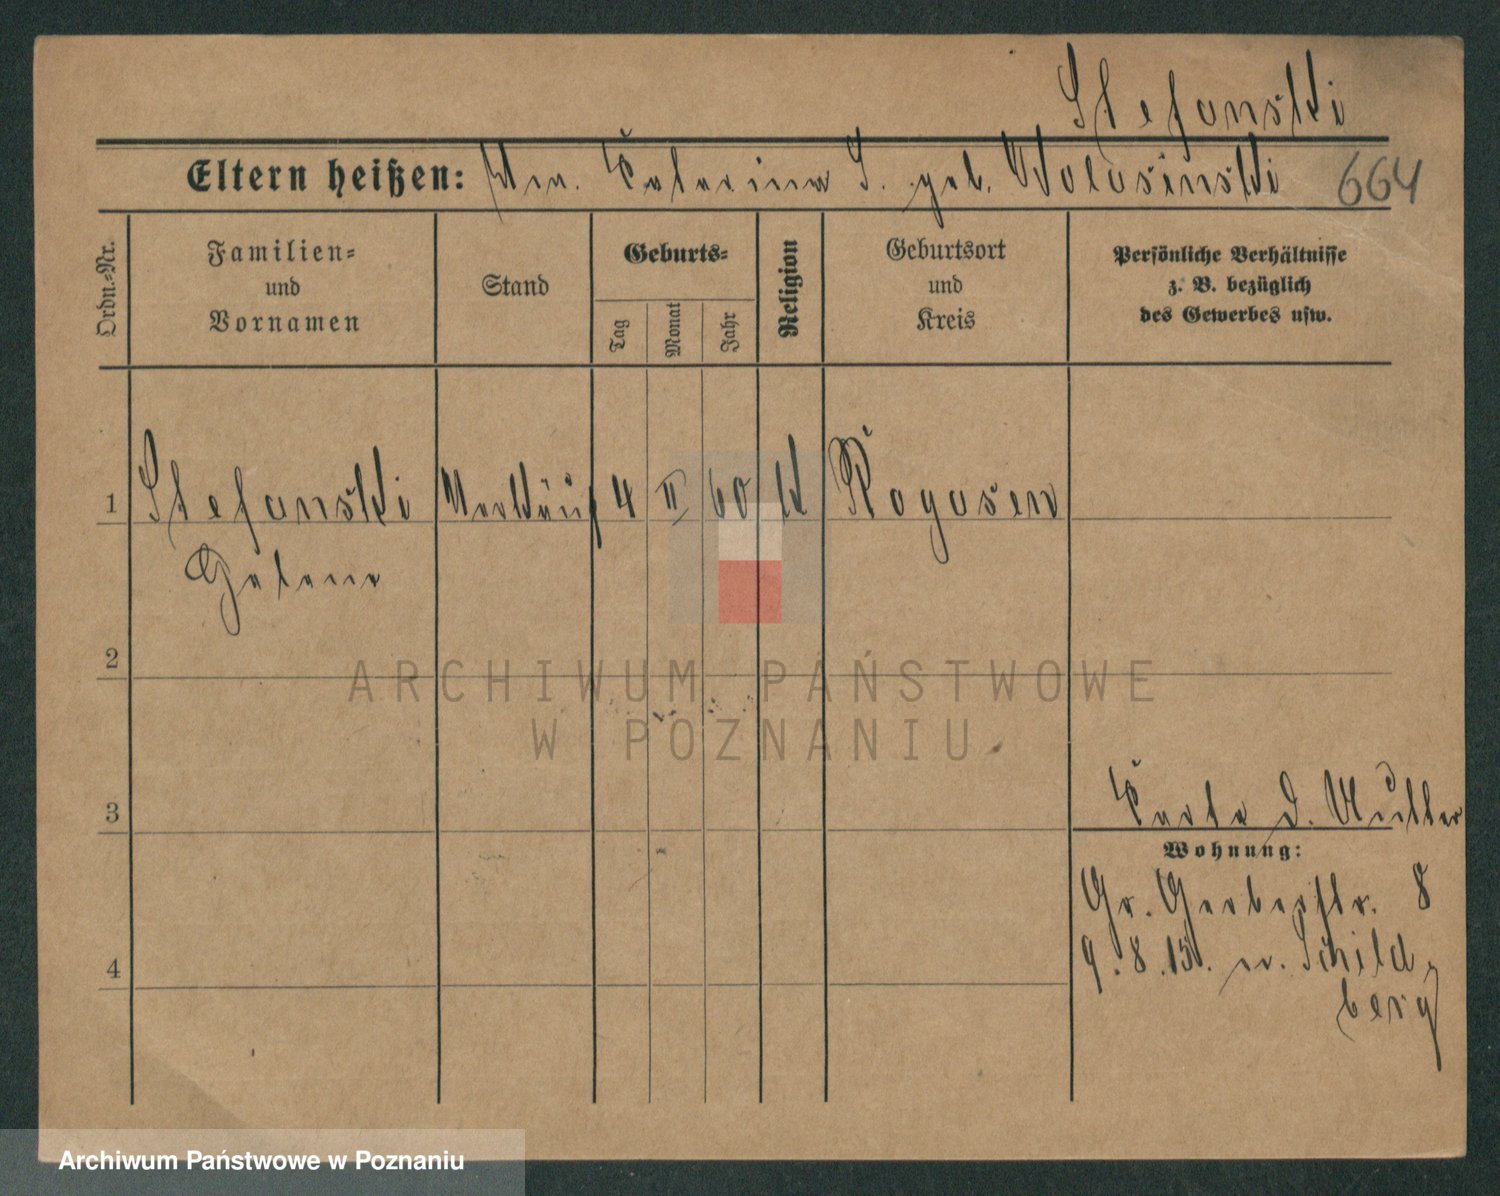 Stefanski
Eltern heißen: Katarina S. geb. Wolosinski 664
Ordn.-Nr.
Familien-
und
Vornamen
Stand
Geburts-
Tag
Monat
Jahr
Religion
Geburtsort
und
Kreis
Persönliche Verhältnisse
z. B. bezüglich
des Gewerbes usw.
1 Stefanski 4 II 60 k Rogasen
Helena
2
3
Karte d. Mutter
Wohnung:
Gr. Gerberstr. 8
9.8.15. n. Schild-
berg
4
ARCHIWUM PAŃSTWOWE
W POZNANIU
Archiwum Państwowe w Poznaniu